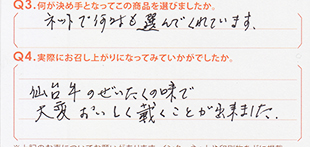 Q3.何が決め手となってこの商品を選びましたか。
ネットで何時も選んでくれています.
Q4.実際にお召し上がりになってみていかがでしたか。
仙台牛のぜいたくの味で
大変おいしく戴くことが出来ました.